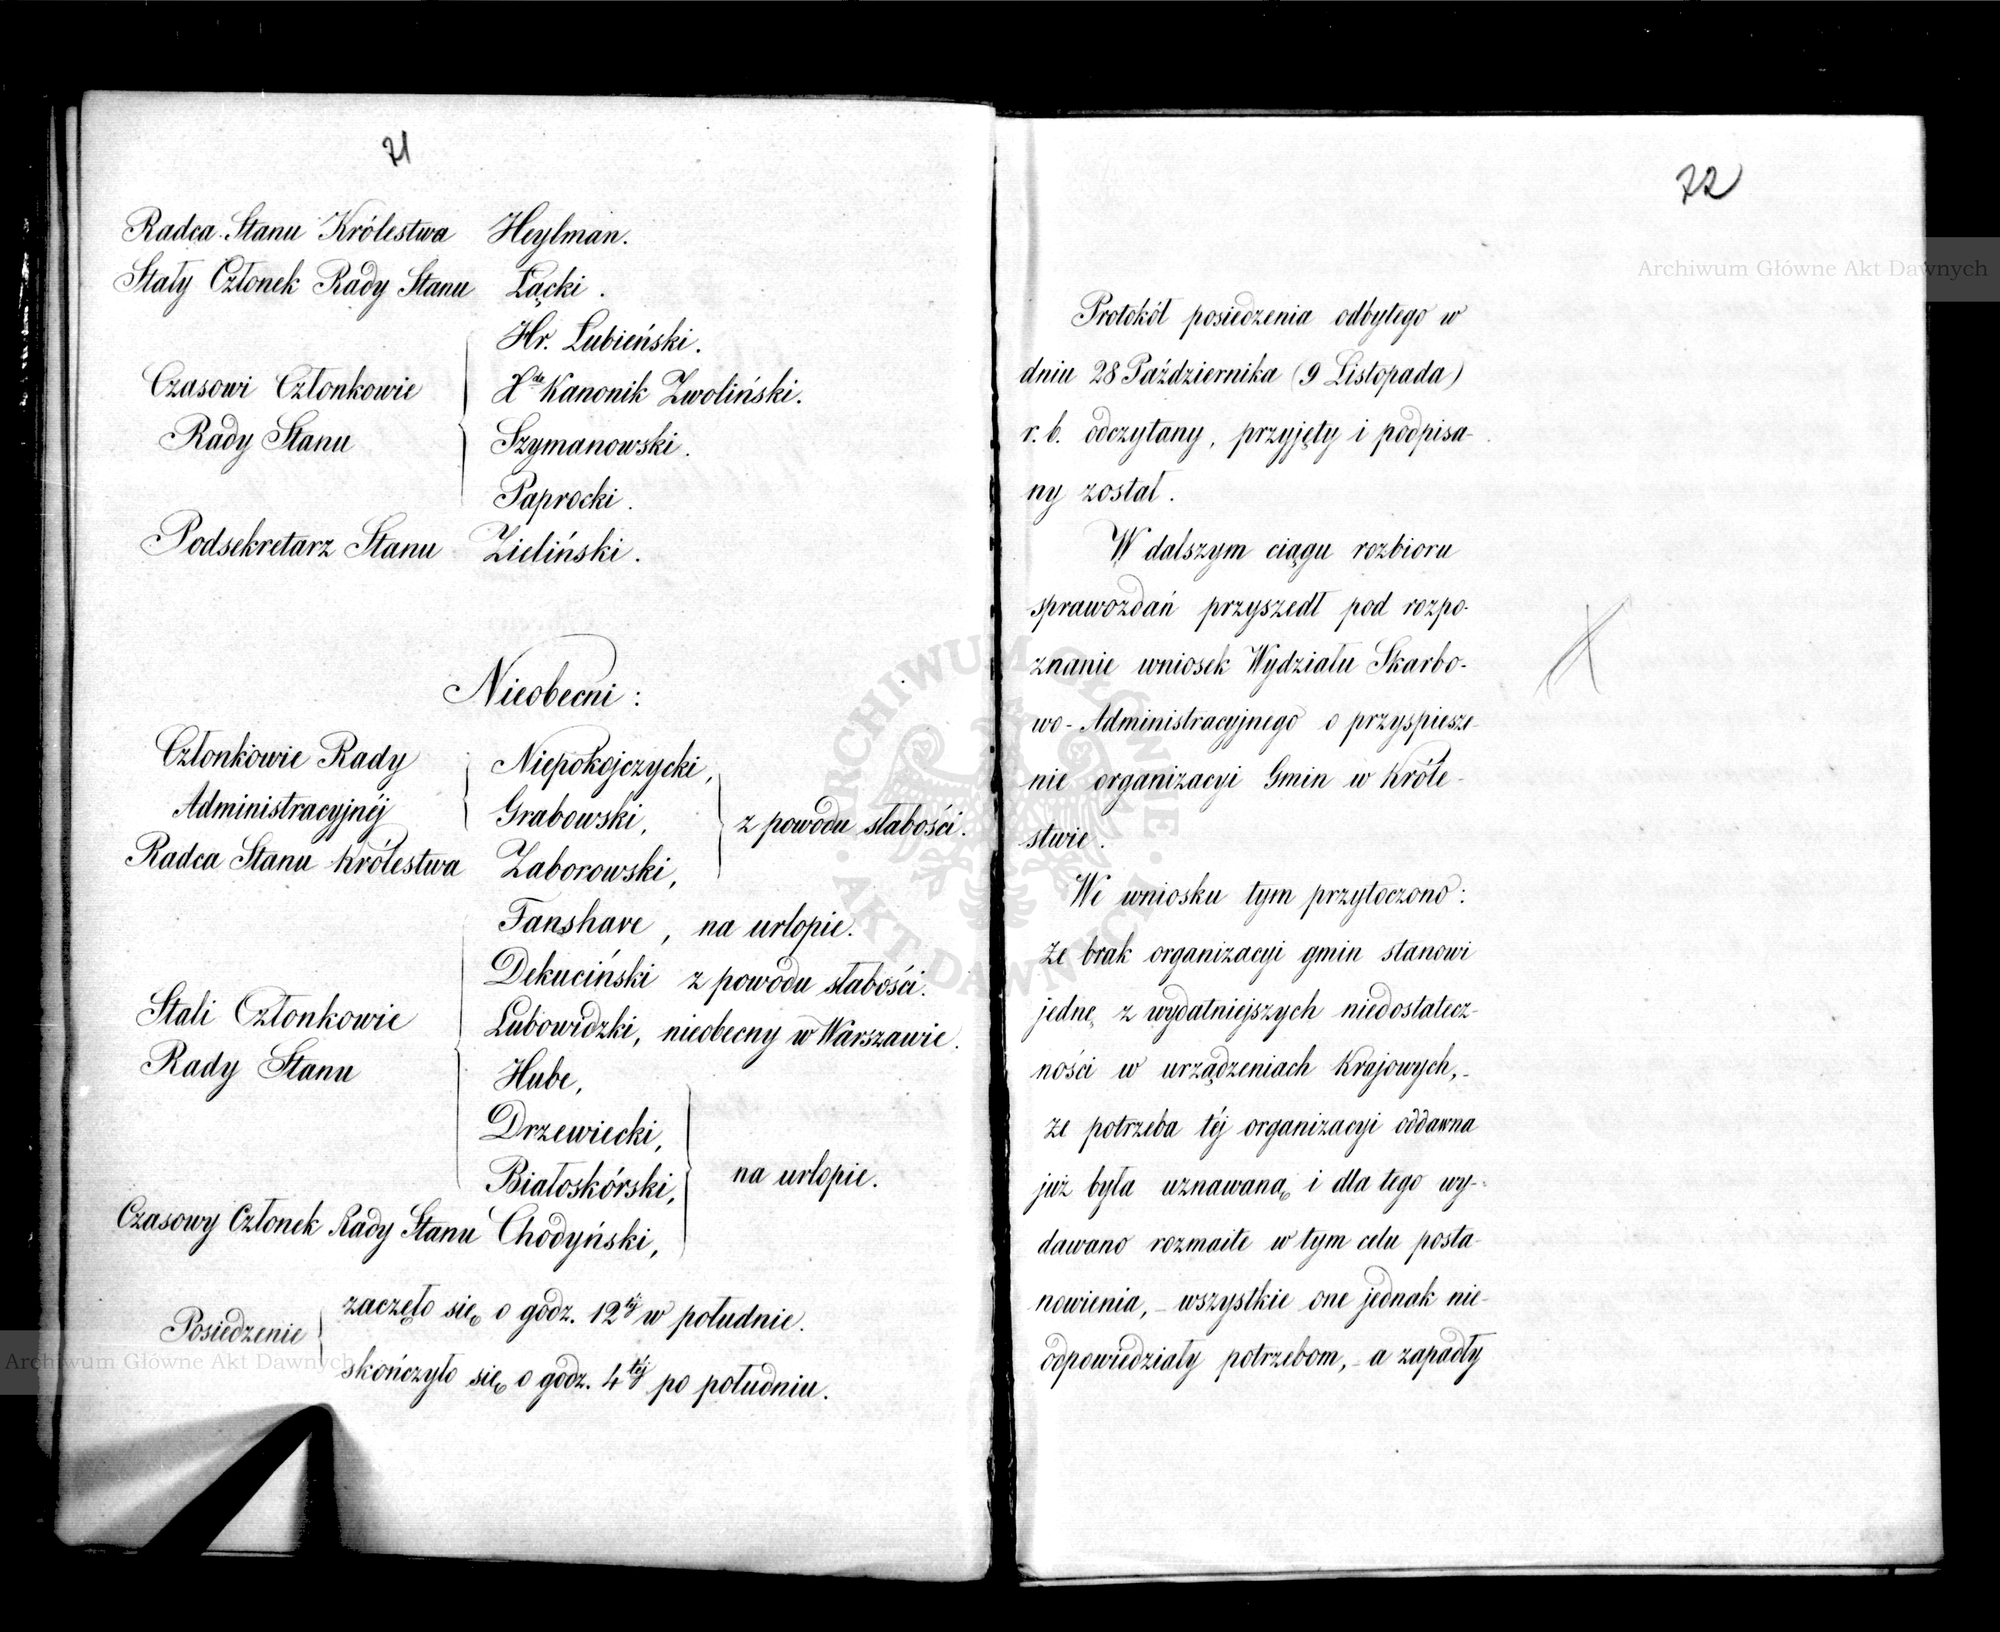 71
Radca Stanu Królestwa Heylman.
Stały Członek Rady Stanu Łącki.
Czasowi Członkowie Rady Stanu
Hr. Łubieński.
Xdz Kanonik Zwoliński.
Szymanowski.
Paprocki.
Podsekretarz Stanu Zieliński.
Nieobecni:
Członkowie Rady
Administracyjnéj
Niepokojczycki,
Grabowski,
Radca Stanu Królestwa Zaborowski,
z powodu słabości.
Stali Członkowie
Rady Stanu
Fanshave, na urlopie.
Dekuciński z powodu słabości.
Lubowidzki, nieobecny w Warszawie.
Hube,
Drzewiecki,
Białoskórski,
Czasowy Członek Rady Stanu Chodyński,
na urlopie.
Posiedzenie
zaczęło się o godz. 12téj w południe.
skończyło się o godz. 4téj po południu.
72
Protokół posiedzenia odbytego w
dniu 28 Października (9 Listopada)
r. b. odczytany, przyjęty i podpisa-
ny został.
W dalszym ciągu rozbioru
sprawozdań przyszedł pod rozpo-
znanie wniosek Wydziału Skarbo-
wo-Administracyjnego o przyspiesze-
nie organizacyi Gmin w Króle-
stwie.
We wniosku tym przytoczono:
że brak organizacyi gmin stanowi
jednę z wydatniejszych niedostatecz-
ności w urządzeniach Krajowych,-
że potrzeba téj organizacyi oddawna
już była uznawaną i dla tego wy-
dawano rozmaite w tym celu posta-
nowienia,- wszystkie one jednak nie-
odpowiedziały potrzebom,- a zapadły
Archiwum Główne Akt Dawnych
Archiwum Główne Akt Dawnych
ARCHIWUM GŁÓWNE AKT DAWNYCH